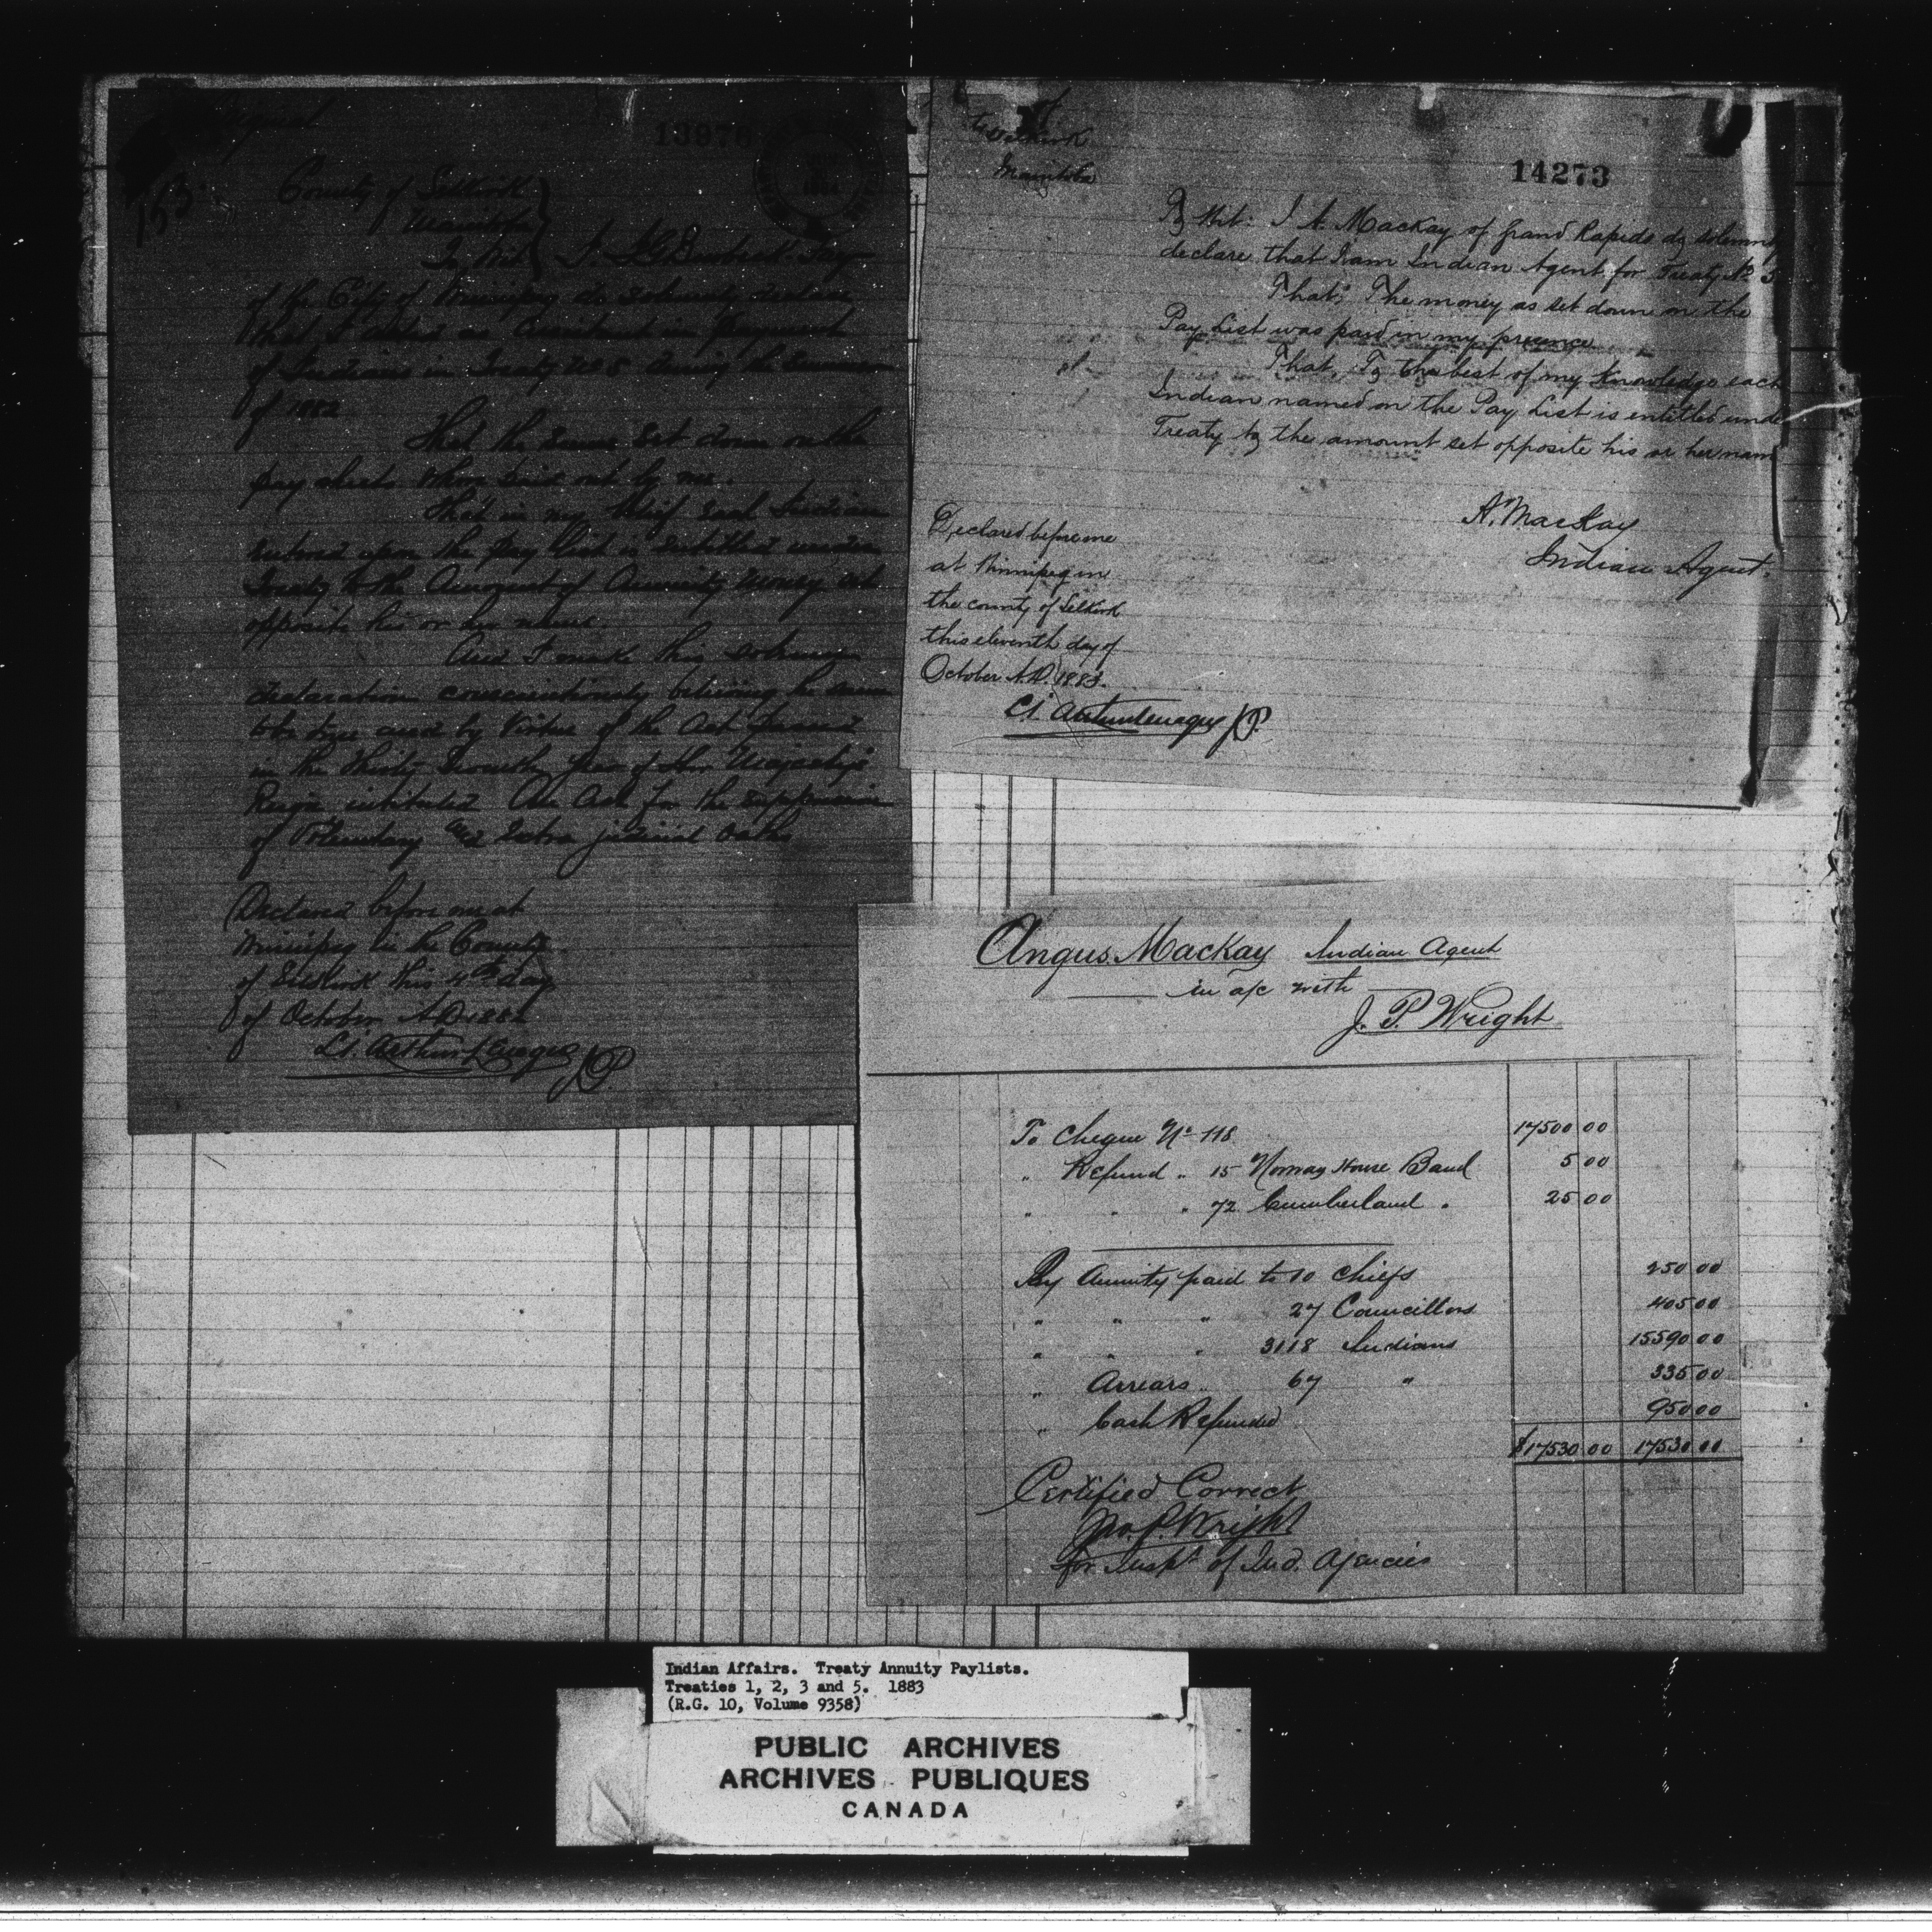 13976
153
County of Selkirk
Manitoba
To Wit
of the City of Winnipeg do solemnly declare
that I acted as in payment
of Indians in Treaty No 5 during the Summer
of 1882
That the sums set down on the
pay sheets were paid out by me.
That in my belief each Indian
entered upon the pay list is entitled under
Treaty to the amount of Annuity money set
opposite his or her name.
And I make this solemn
declaration conscientiously believing the same
to be true and by virtue of the Act passed
in the thirty seventh year of Her Majesty's
Reign intituled An Act for the suppression
of Voluntary and Extra judicial oaths
Declared before me at
Winnipeg in the County
of Selkirk this 4th day
of October AD 1882
JP
Selkirk
Manitoba
14273
To Wit: I A. Mackay of Grand Rapids do solemnly
declare that I am Indian Agent for Treaty No 5
That: The money as set down on the
Pay List was paid in my presence
That, To the best of my knowledge each
Indian named on the Pay List is entitled unde
Treaty to the amount set opposite his or her nam
A. MacKay
Indian Agent.
Declared before me
at Winnipeg in
the county of Selkirk
this eleventh day of
October A.D. 1883.
JP.
Angus Mackay Indian Agent
in a/c with
J. P. Wright
To Cheque No 118 17500 00
" Refund " 15 Norway House Band 5 00
" " " 72 Cumberland " 25 00
By Annuity paid to 10 Chiefs 250 00
" " " 27 Councillors 405 00
" " " 3118 Indians 15590 00
" Arrears " 67 " 335 00
" Cash Refunded 950 00
$17530 00 17530 00
Certified Correct
Jno. P. Wright
for Inspt of Ind. Agencies
Indian Affairs. Treaty Annuity Paylists.
Treaties 1, 2, 3 and 5. 1883
(R.G. 10, Volume 9358)
PUBLIC ARCHIVES
ARCHIVES PUBLIQUES
CANADA